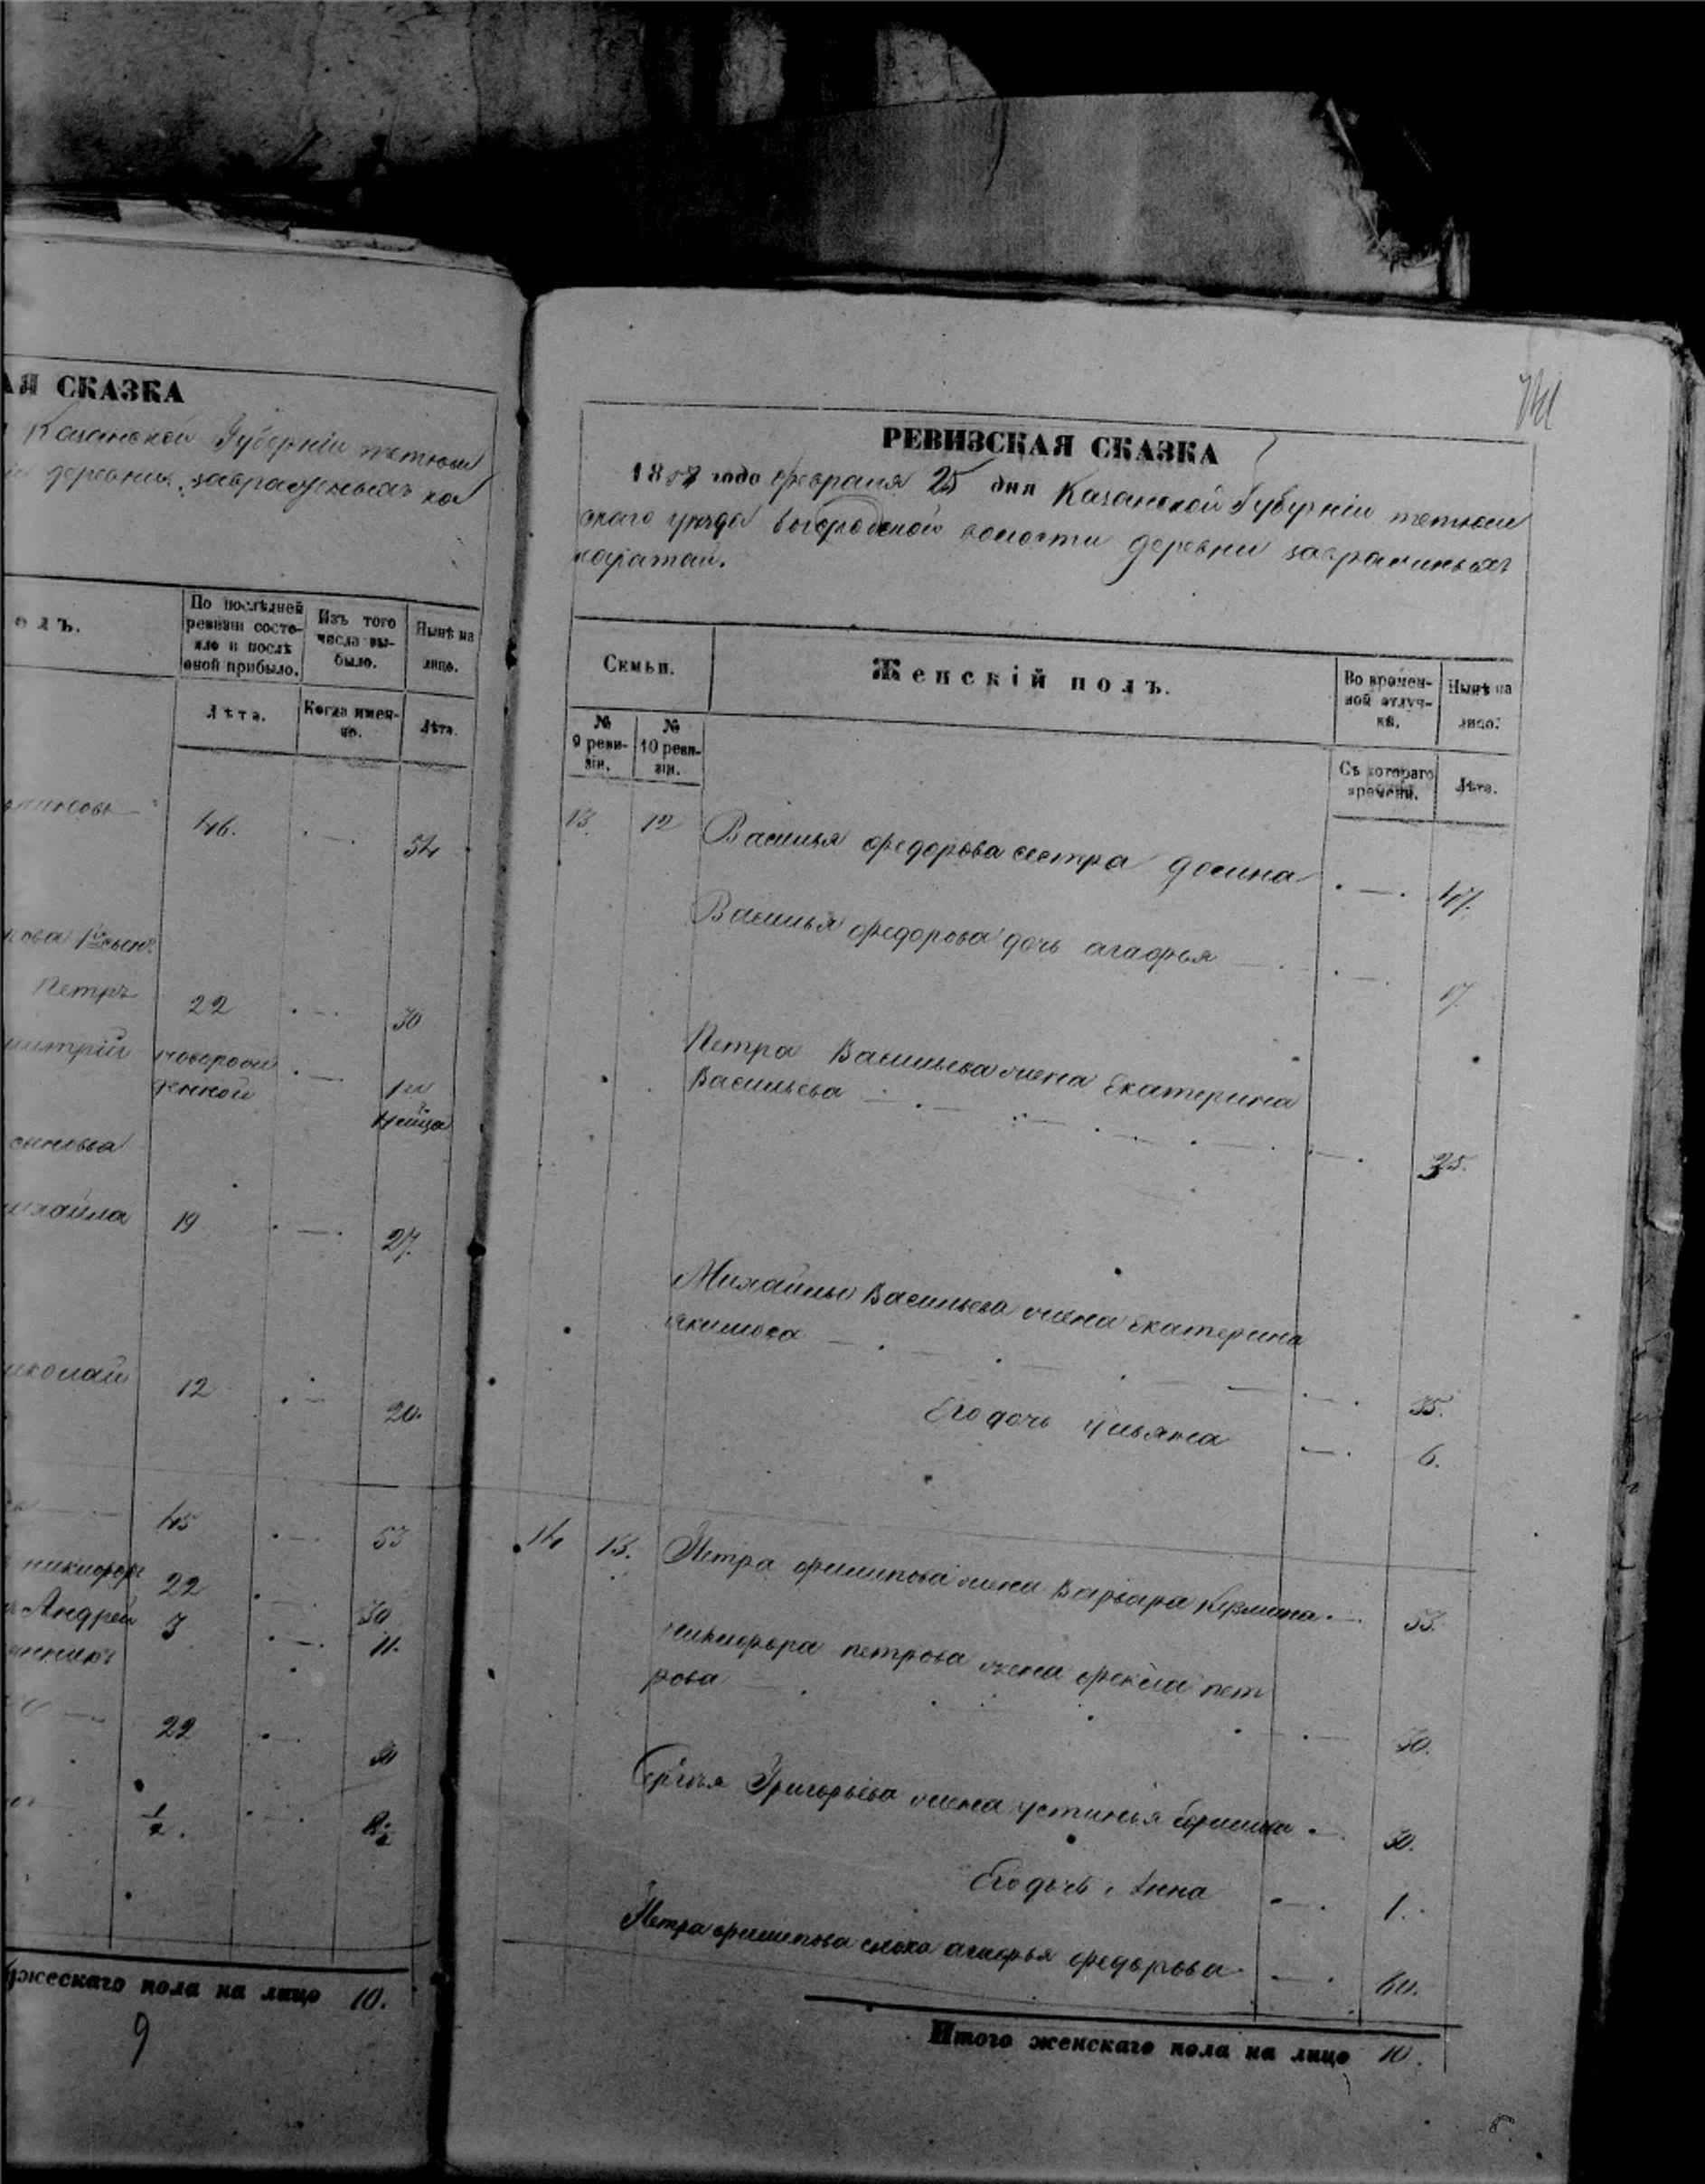 АЯ СКАЗКА
Казанской Губерніи тетюш
деревни
олъ.
По послѣдней ревизіи состояло и послѣ оной прибыло.
Изъ того числа выбыло.
Нынѣ на лицо.
Лѣта.
Когда именно.
Лѣта.
46. 54
Петръ 22 30
митрій новорож
денной
михайла 19 27.
иколай 12 20.
45 53
никифоръ 22 30
Андрей 3 11.
22 30
1/2. 8 1/2
ужескаго пола на лицо 10.
9
РЕВИЗСКАЯ СКАЗКА
1858 года февраля 25 дня Казанской Губерніи тетюш
скаго уезда богородской волости деревни
каратай.
Семьи.
Женскій полъ.
Во временной отлучкѣ.
Нынѣ на лицо.
№ 9 ревизіи.
№ 10 ревизіи.
Съ котораго времени.
Лѣта.
13. 12 Василья федорова сестра 47.
Василья федорова дочь агафья 17.
Петра Васильева жена Екатерина
Васильева
Михайлы Васильева жена екатерина
якимова 35.
Его дочь ульяна 6.
14 13. Петра филипова жена Варвара 53.
никифора петрова жена фекла пет
рова 30.
Сергея Григорьева жена устинья 30.
Его дочь Анна 1.
Петра филипова сноха агафья федорова 60.
Итого женскаго пола на лицо 10.